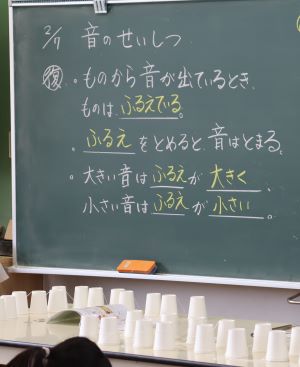 2/17 音のせいしつ
復 ・ものから音が出ているとき、
ものは、ふるえている。
・ふるえをとめると、音はとまる。
・大きい音はふるえが大きく、
小さい音はふるえが小さい。